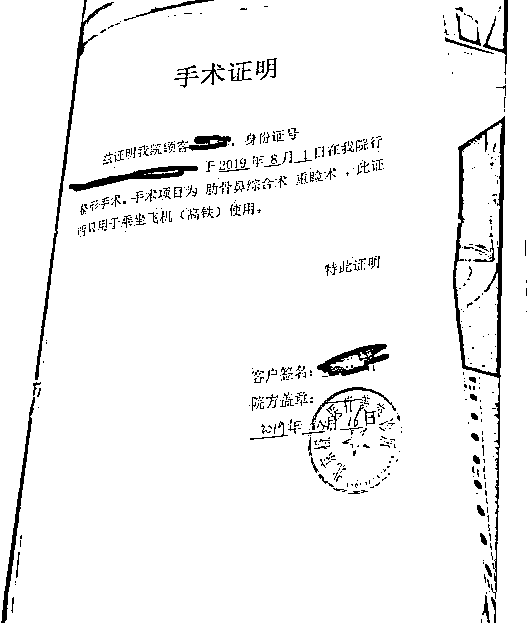 手术证明
兹证明我院顾客 ，身份证号
于2019年8月1日在我院行
整形手术。手术项目为 肋骨鼻综合术 重睑术 ，此证
明只用于乘坐飞机（高铁）使用。
特此证明
客户签名：
院方盖章：
2019年 月16日
北京